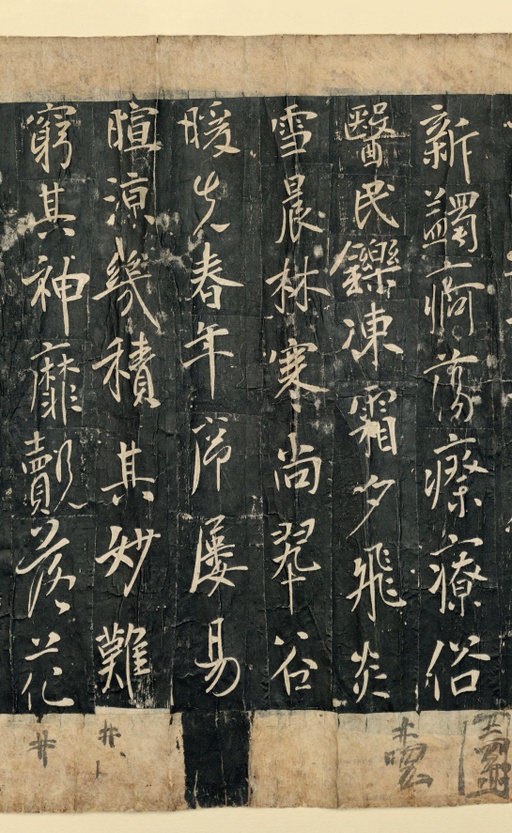 新蠲痾蕩瘵療俗
醫民鑠凍霜夕飛炎
雪晨林寒尚翠谷
暖先春年序屢易
暄涼幾積其妙難
窮其神靡覿落花